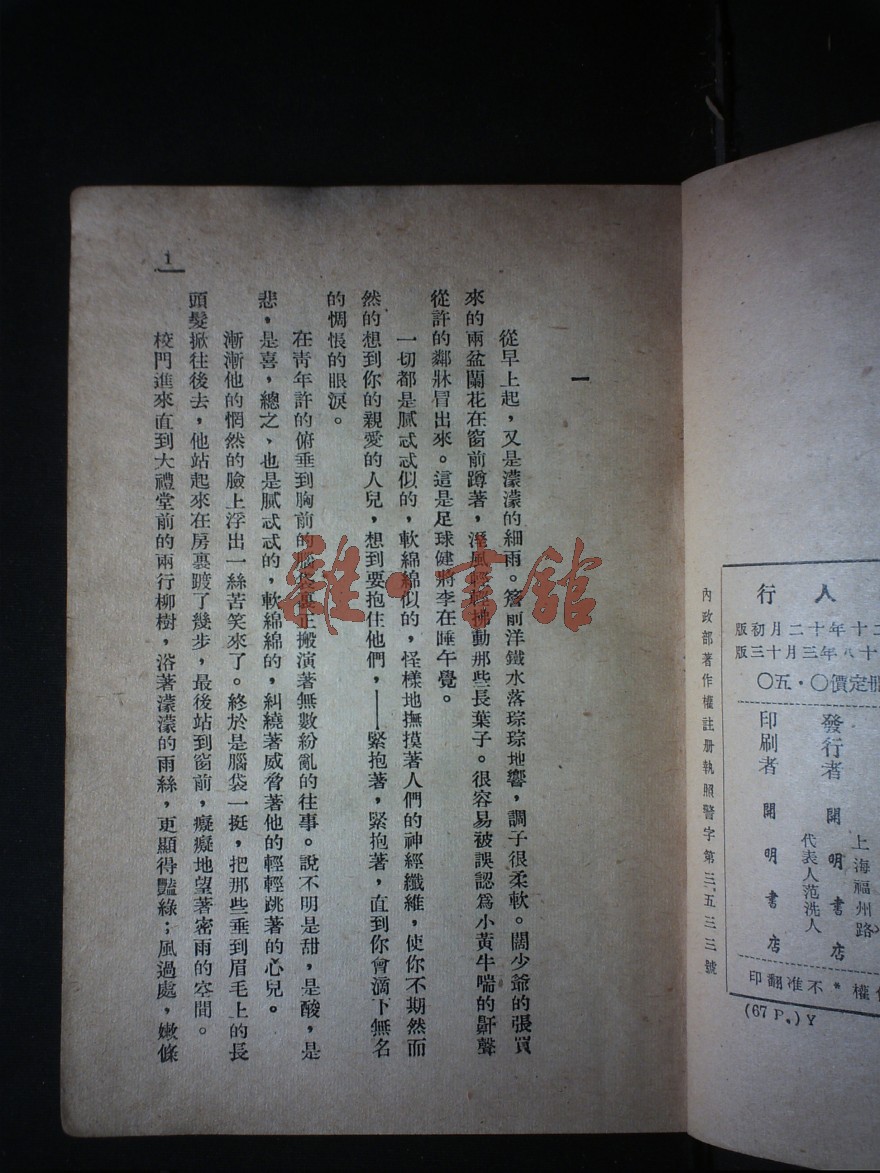 人行
二十年十二月初版
十八年三月十三版
冊定價〇·五〇
上海福州路
發行者 開明書店
代表人范洗人
印刷者 開明書店
權*不准翻印
(67 P.) Y
內政部著作權註册執照警字第三五三三號
一
從早上起，又是濛濛的細雨。簷前洋鐵水落琮琮地響，調子很柔軟。闊少爺的張買
來的兩盆蘭花在窗前蹲著，溼風輕輕拂動那些長葉子。很容易被誤認爲小黃牛喘的鼾聲
從許的鄰牀冒出來。這是足球健將李在睡午覺。
一切都是膩忒忒似的，軟綿綿似的，怪樣地撫摸著人們的神經纖維，使你不期然而
然的想到你的親愛的人兒，想到要抱住他們，——緊抱著，緊抱著，直到你會滴下無名
的惆悵的眼淚。
在靑年許的俯垂到胸前的腦袋裏正搬演著無數紛亂的往事。說不明是甜，是酸，是
悲，是喜，總之、也是膩忒忒的，軟綿綿的，糾繞著威脅著他的輕輕跳著的心兒。
漸漸他的惘然的臉上浮出一絲苦笑來了。終於是腦袋一挺，把那些垂到眉毛上的長
頭髮掀往後去，他站起來在房裏踱了幾步，最後站到窗前，癡癡地望著密雨的空間。
校門進來直到大禮堂前的兩行柳樹，浴著濛濛的雨絲，更顯得豔綠；風過處，嫩條
1
雜·書館